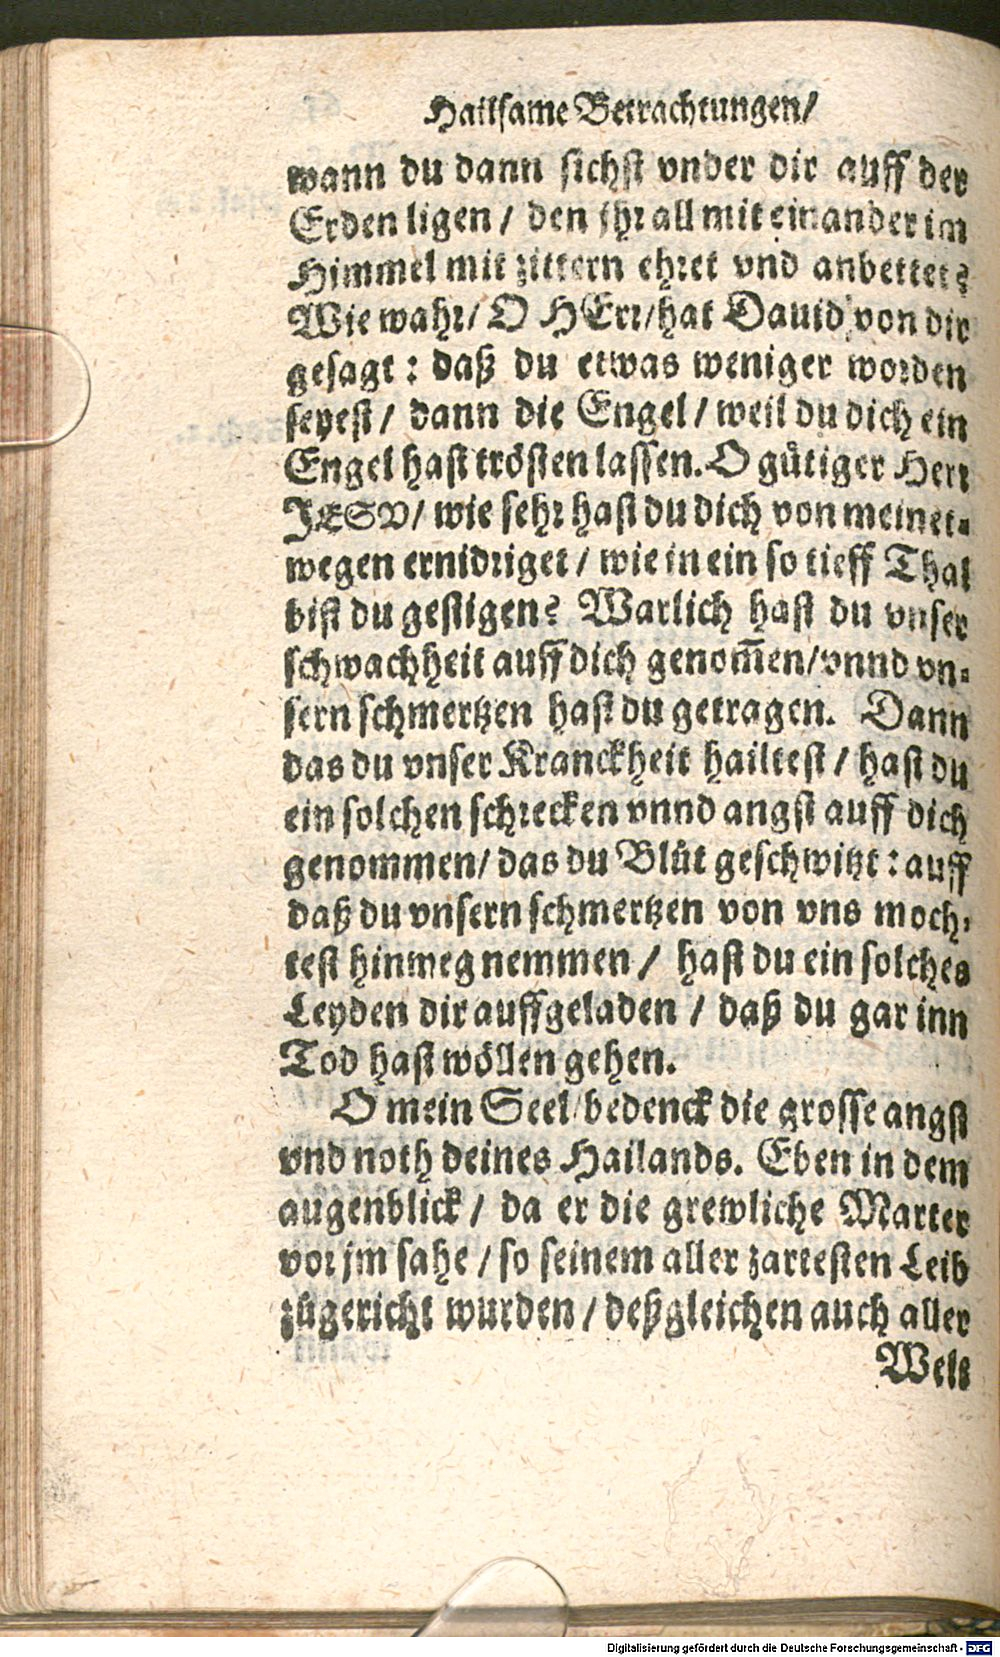 Hailsame Betrachtungen/
wann du dann sichst vnder dir auff der
Erden ligen / den jhr all mit einander im
Himmel mit zittern ehret vnd anbettet?
Wie wahr/ O HErr/hat Dauid von dir
gesagt: daß du etwas weniger worden
seyest / dann die Engel / weil du dich ein
Engel hast trösten lassen. O gütiger Herr
JESV/ wie sehr hast du dich von meinet-
wegen ernidriget / wie in ein so tieff Thal
bist du gestigen? Warlich hast du vnser
schwachheit auff dich genom̃en/vnnd vn-
sern schmertzen hast du getragen. Dann
das du vnser Kranckheit hailtest / hast du
ein solchen schrecken vnnd angst auff dich
genommen/ das du Blůt geschwitzt: auff
daß du vnsern schmertzen von vns moch-
test hinweg nemmen / hast du ein solches
Leyden dir auffgeladen / daß du gar inn
Tod hast wöllen gehen.
O mein Seel/bedenck die grosse angst
vnd noth deines Hailands. Eben in dem
augenblick / da er die grewliche Marter
vor jm sahe / so seinem aller zartesten Leib
zůgericht wurden / deßgleichen auch aller
Welt
Digitalisierung gefördert durch die Deutsche Forschungsgemeinschaft - DFG